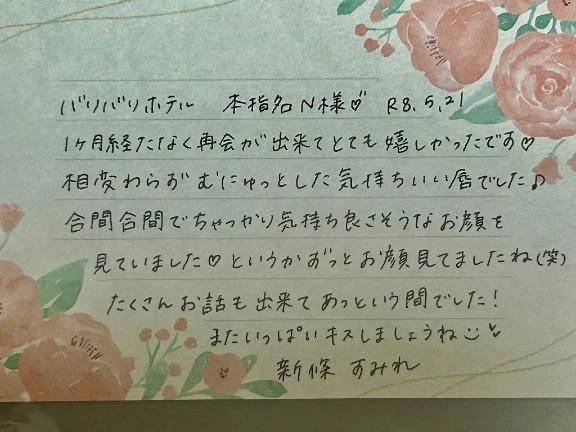 バリバリホテル 本指名N様♡ R8.5,21
1ヶ月経たなく再会が出来てとても嬉しかったです♡
相変わらずむにゅっとした気持ちいい唇でした♪
合間合間でちゃっかり気持ち良さそうなお顔を
見ていました♡というかずっとお顔見てましたね(笑)
たくさんお話も出来てあっという間でした!
またいっぱいキスしましょうね
新條 すみれ